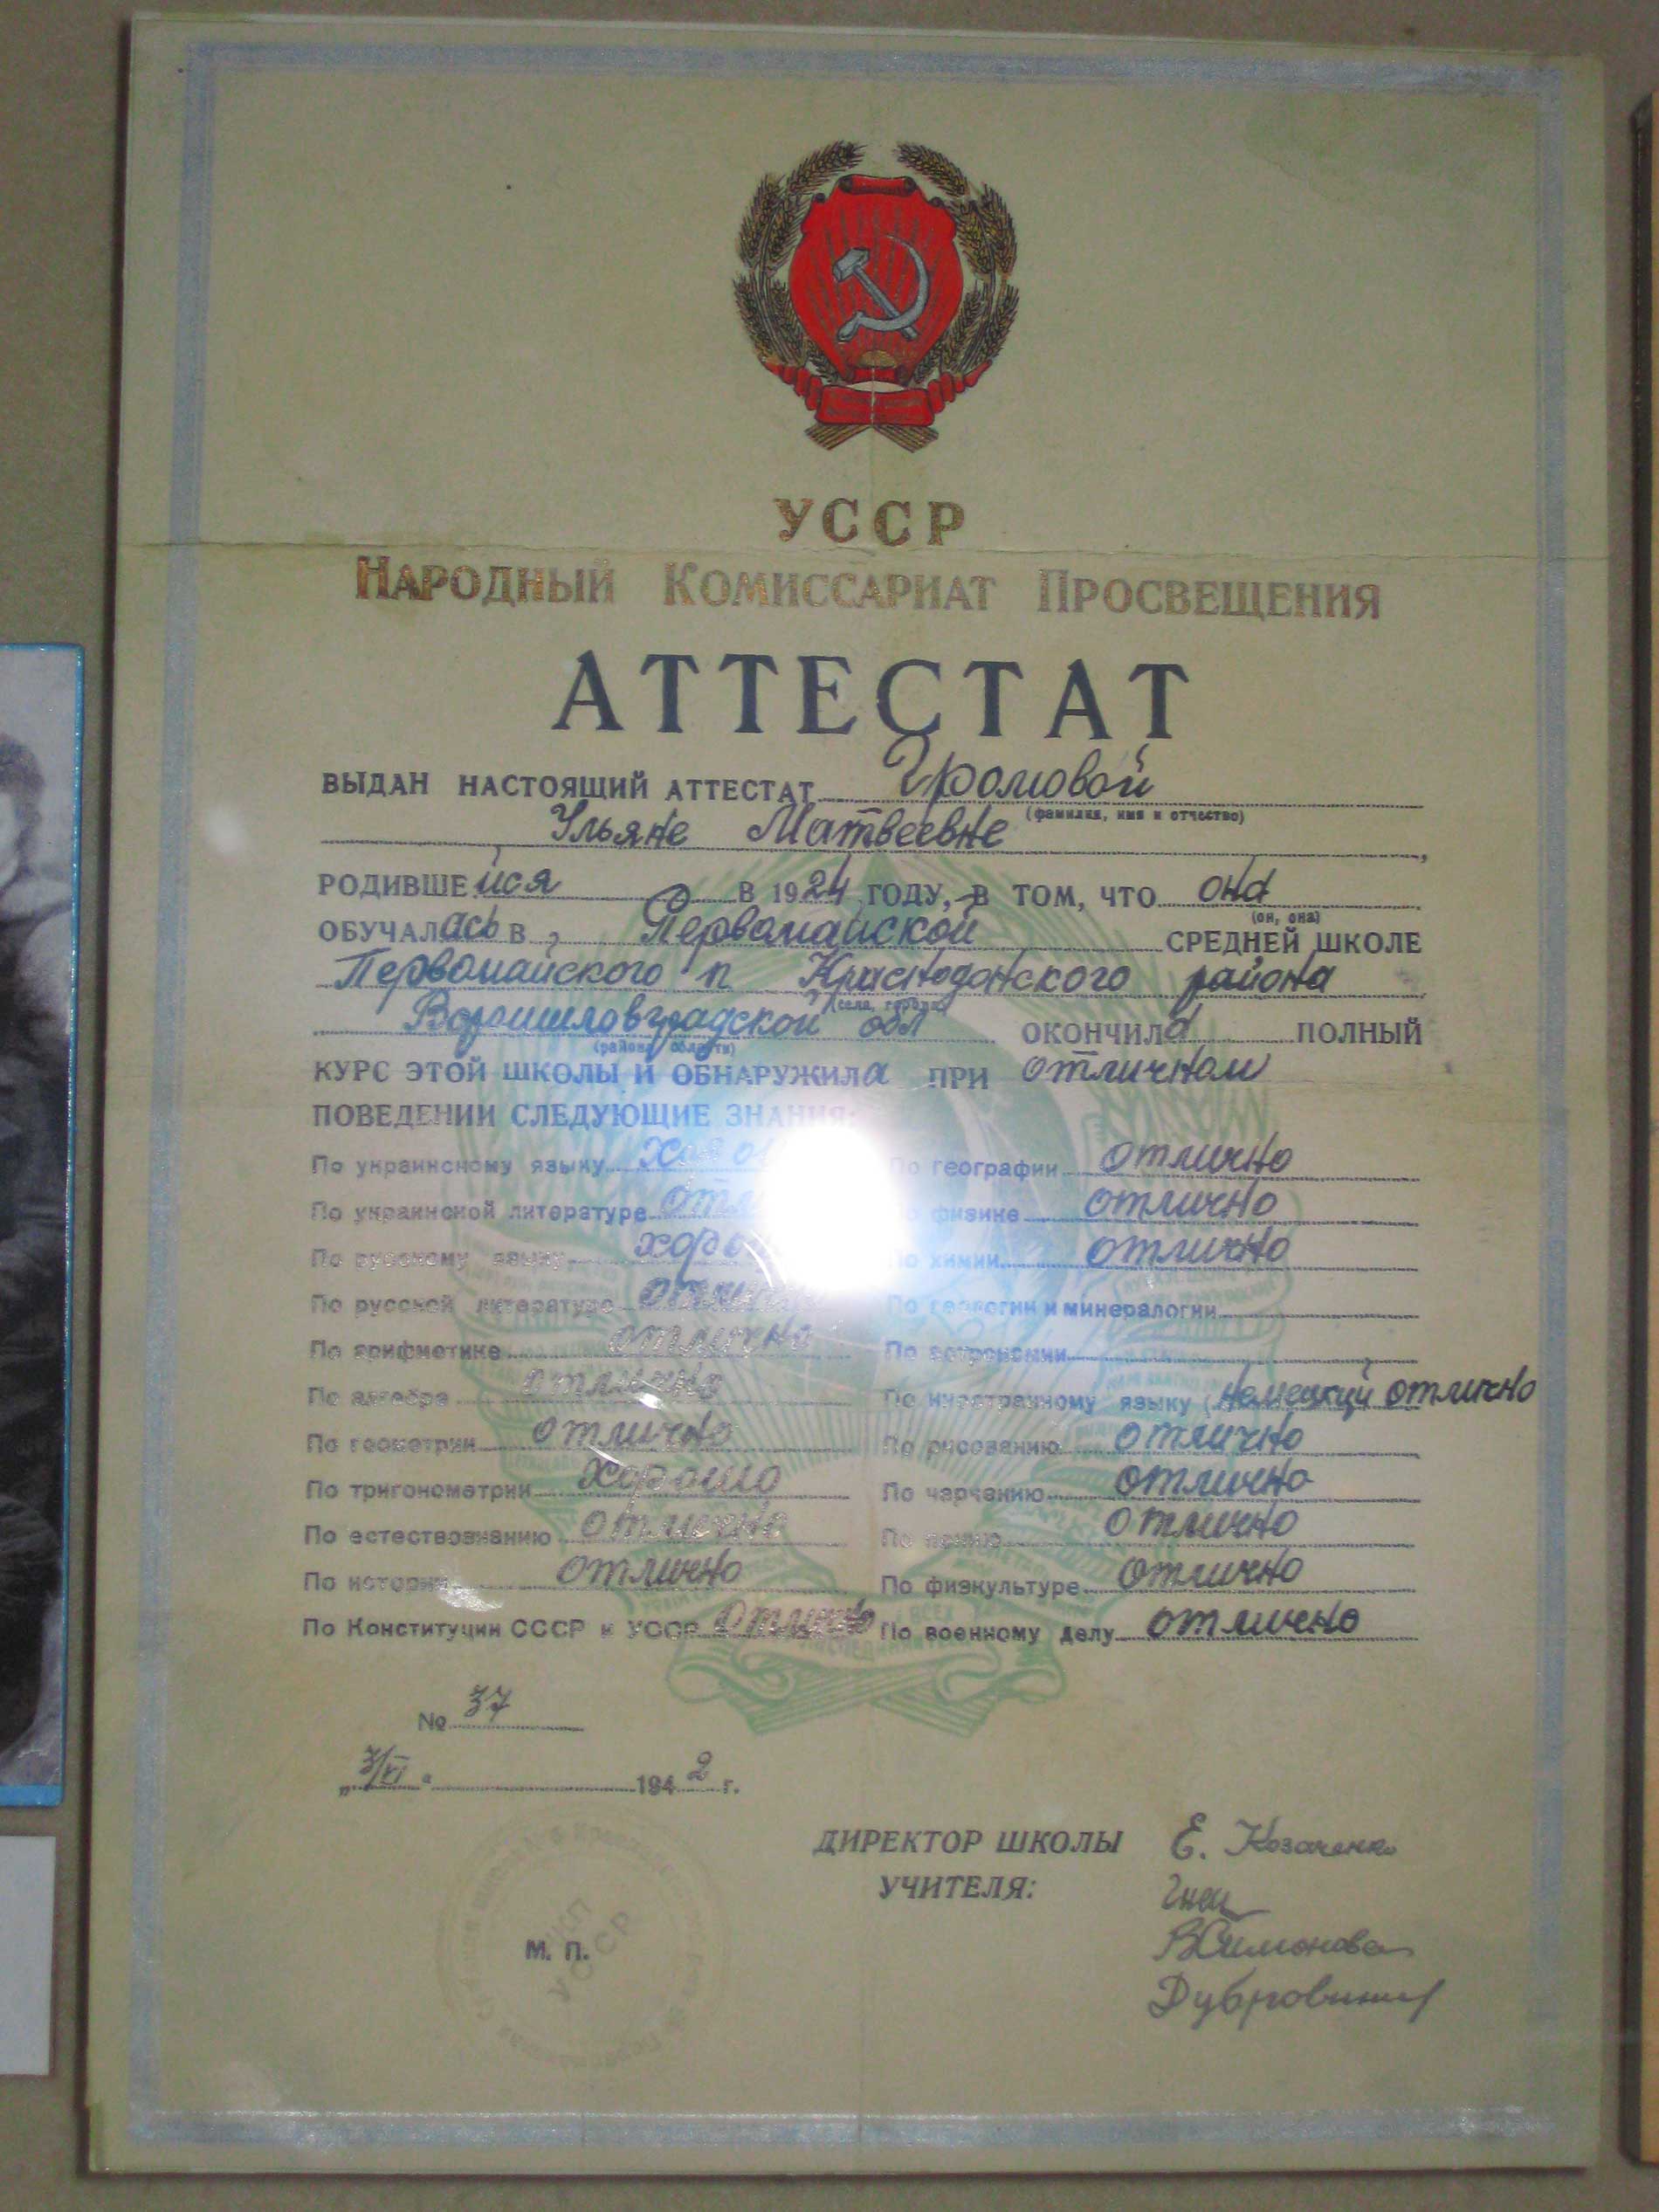 УССР
НАРОДНЫЙ КОМИССАРИАТ ПРОСВЕЩЕНИЯ
АТТЕСТАТ
ВЫДАН НАСТОЯЩИЙ АТТЕСТАТ Громовой
(фамилия, имя и отчество)
Ульяне Матвеевне,
РОДИВШЕйся В 1924 ГОДУ, В ТОМ, ЧТО она
(он, она)
ОБУЧАЛась В Первомайской СРЕДНЕЙ ШКОЛЕ
Первомайского п Краснодонского района
(села, города)
Ворошиловградской обл ОКОНЧИЛа ПОЛНЫЙ
(района, области)
КУРС ЭТОЙ ШКОЛЫ И ОБНАРУЖИЛа ПРИ отличном
ПОВЕДЕНИИ СЛЕДУЮЩИЕ ЗНАНИЯ:
По украинскому языку По географии отлично
По украинской литературе По физике отлично
По русскому языку По химии отлично
По русской литературе отлично По геологии и минералогии
По арифметике отлично По астрономии
По алгебре отлично По иностранному языку (немецкий отлично
По геометрии отлично По рисованию отлично
По тригонометрии хорошо По черчению отлично
По естествознанию отлично По пению отлично
По истории отлично По физкультуре отлично
По Конституции СССР и УССР отлично По военному делу отлично
№ 37
„3/VI" 1942 г.
ДИРЕКТОР ШКОЛЫ Е. Козаченко
УЧИТЕЛЯ:
ВСимонова
М. П.
НКП
УССР